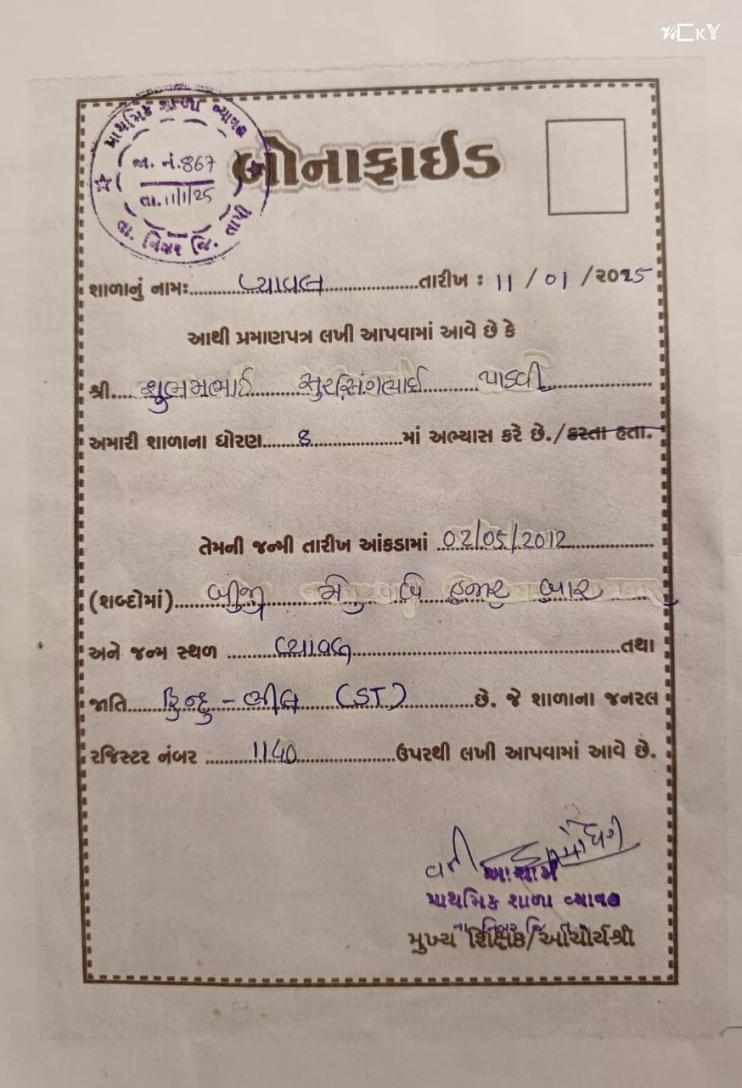 ViCKY
પ્રાથમિક શાળા વ્યાવલ
જા. નં. 867
તા. 11/1/25
તા. નિઝર જિ. તાપી
બોનાફાઈડ
શાળાનું નામઃ વ્યાવલ તારીખ : 11 / 01 / ૨૦25
આથી પ્રમાણપત્ર લખી આપવામાં આવે છે કે
શ્રી. શુભમભાઈ સુરસિંગભાઈ પાડવી
અમારી શાળાના ધોરણ 8 માં અભ્યાસ કરે છે./કરતા હતા.
તેમની જન્મી તારીખ આંકડામાં 02/05/2012
(શબ્દોમાં) બીજી મે બે હજાર બાર
અને જન્મ સ્થળ વ્યાવલ તથા
જાતિ હિન્દુ - ભીલ (ST) છે. જે શાળાના જનરલ
રજિસ્ટર નંબર 1140 ઉપરથી લખી આપવામાં આવે છે.
આચાર્ય
પ્રાથમિક શાળા વ્યાવલ
તા નિઝર જિ
મુખ્ય શિક્ષક/આચાર્યશ્રી